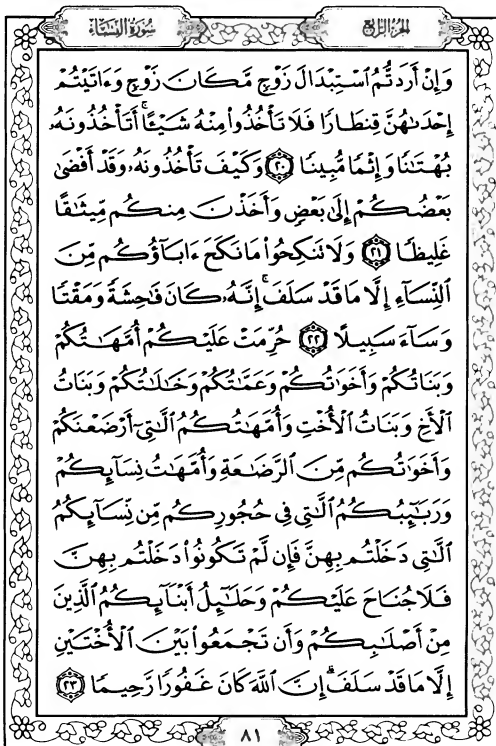 سُورَةُ النِّسَاءِ
الجزء الرابع
وَإِنْ أَرَدتُّمُ ٱسْتِبْدَالَ زَوْجٍ مَّكَانَ زَوْجٍ وَءَاتَيْتُمْ
إِحْدَىٰهُنَّ قِنطَارًا فَلَا تَأْخُذُوا۟ مِنْهُ شَيْـًٔا ۚ أَتَأْخُذُونَهُۥ
بُهْتَٰنًا وَإِثْمًا مُّبِينًا ٢٠ وَكَيْفَ تَأْخُذُونَهُۥ وَقَدْ أَفْضَىٰ
بَعْضُكُمْ إِلَىٰ بَعْضٍ وَأَخَذْنَ مِنكُم مِّيثَٰقًا
غَلِيظًا ٢١ وَلَا تَنكِحُوا۟ مَا نَكَحَ ءَابَآؤُكُم مِّنَ
ٱلنِّسَآءِ إِلَّا مَا قَدْ سَلَفَ ۚ إِنَّهُۥ كَانَ فَٰحِشَةً وَمَقْتًا
وَسَآءَ سَبِيلًا ٢٢ حُرِّمَتْ عَلَيْكُمْ أُمَّهَٰتُكُمْ
وَبَنَاتُكُمْ وَأَخَوَٰتُكُمْ وَعَمَّٰتُكُمْ وَخَٰلَٰتُكُمْ وَبَنَاتُ
ٱلْأَخِ وَبَنَاتُ ٱلْأُخْتِ وَأُمَّهَٰتُكُمُ ٱلَّٰتِىٓ أَرْضَعْنَكُمْ
وَأَخَوَٰتُكُم مِّنَ ٱلرَّضَٰعَةِ وَأُمَّهَٰتُ نِسَآئِكُمْ
وَرَبَٰٓئِبُكُمُ ٱلَّٰتِى فِى حُجُورِكُم مِّن نِّسَآئِكُمُ
ٱلَّٰتِى دَخَلْتُم بِهِنَّ فَإِن لَّمْ تَكُونُوا۟ دَخَلْتُم بِهِنَّ
فَلَا جُنَاحَ عَلَيْكُمْ وَحَلَٰٓئِلُ أَبْنَآئِكُمُ ٱلَّذِينَ
مِنْ أَصْلَٰبِكُمْ وَأَن تَجْمَعُوا۟ بَيْنَ ٱلْأُخْتَيْنِ
إِلَّا مَا قَدْ سَلَفَ ۗ إِنَّ ٱللَّهَ كَانَ غَفُورًا رَّحِيمًا ٢٣
٨١